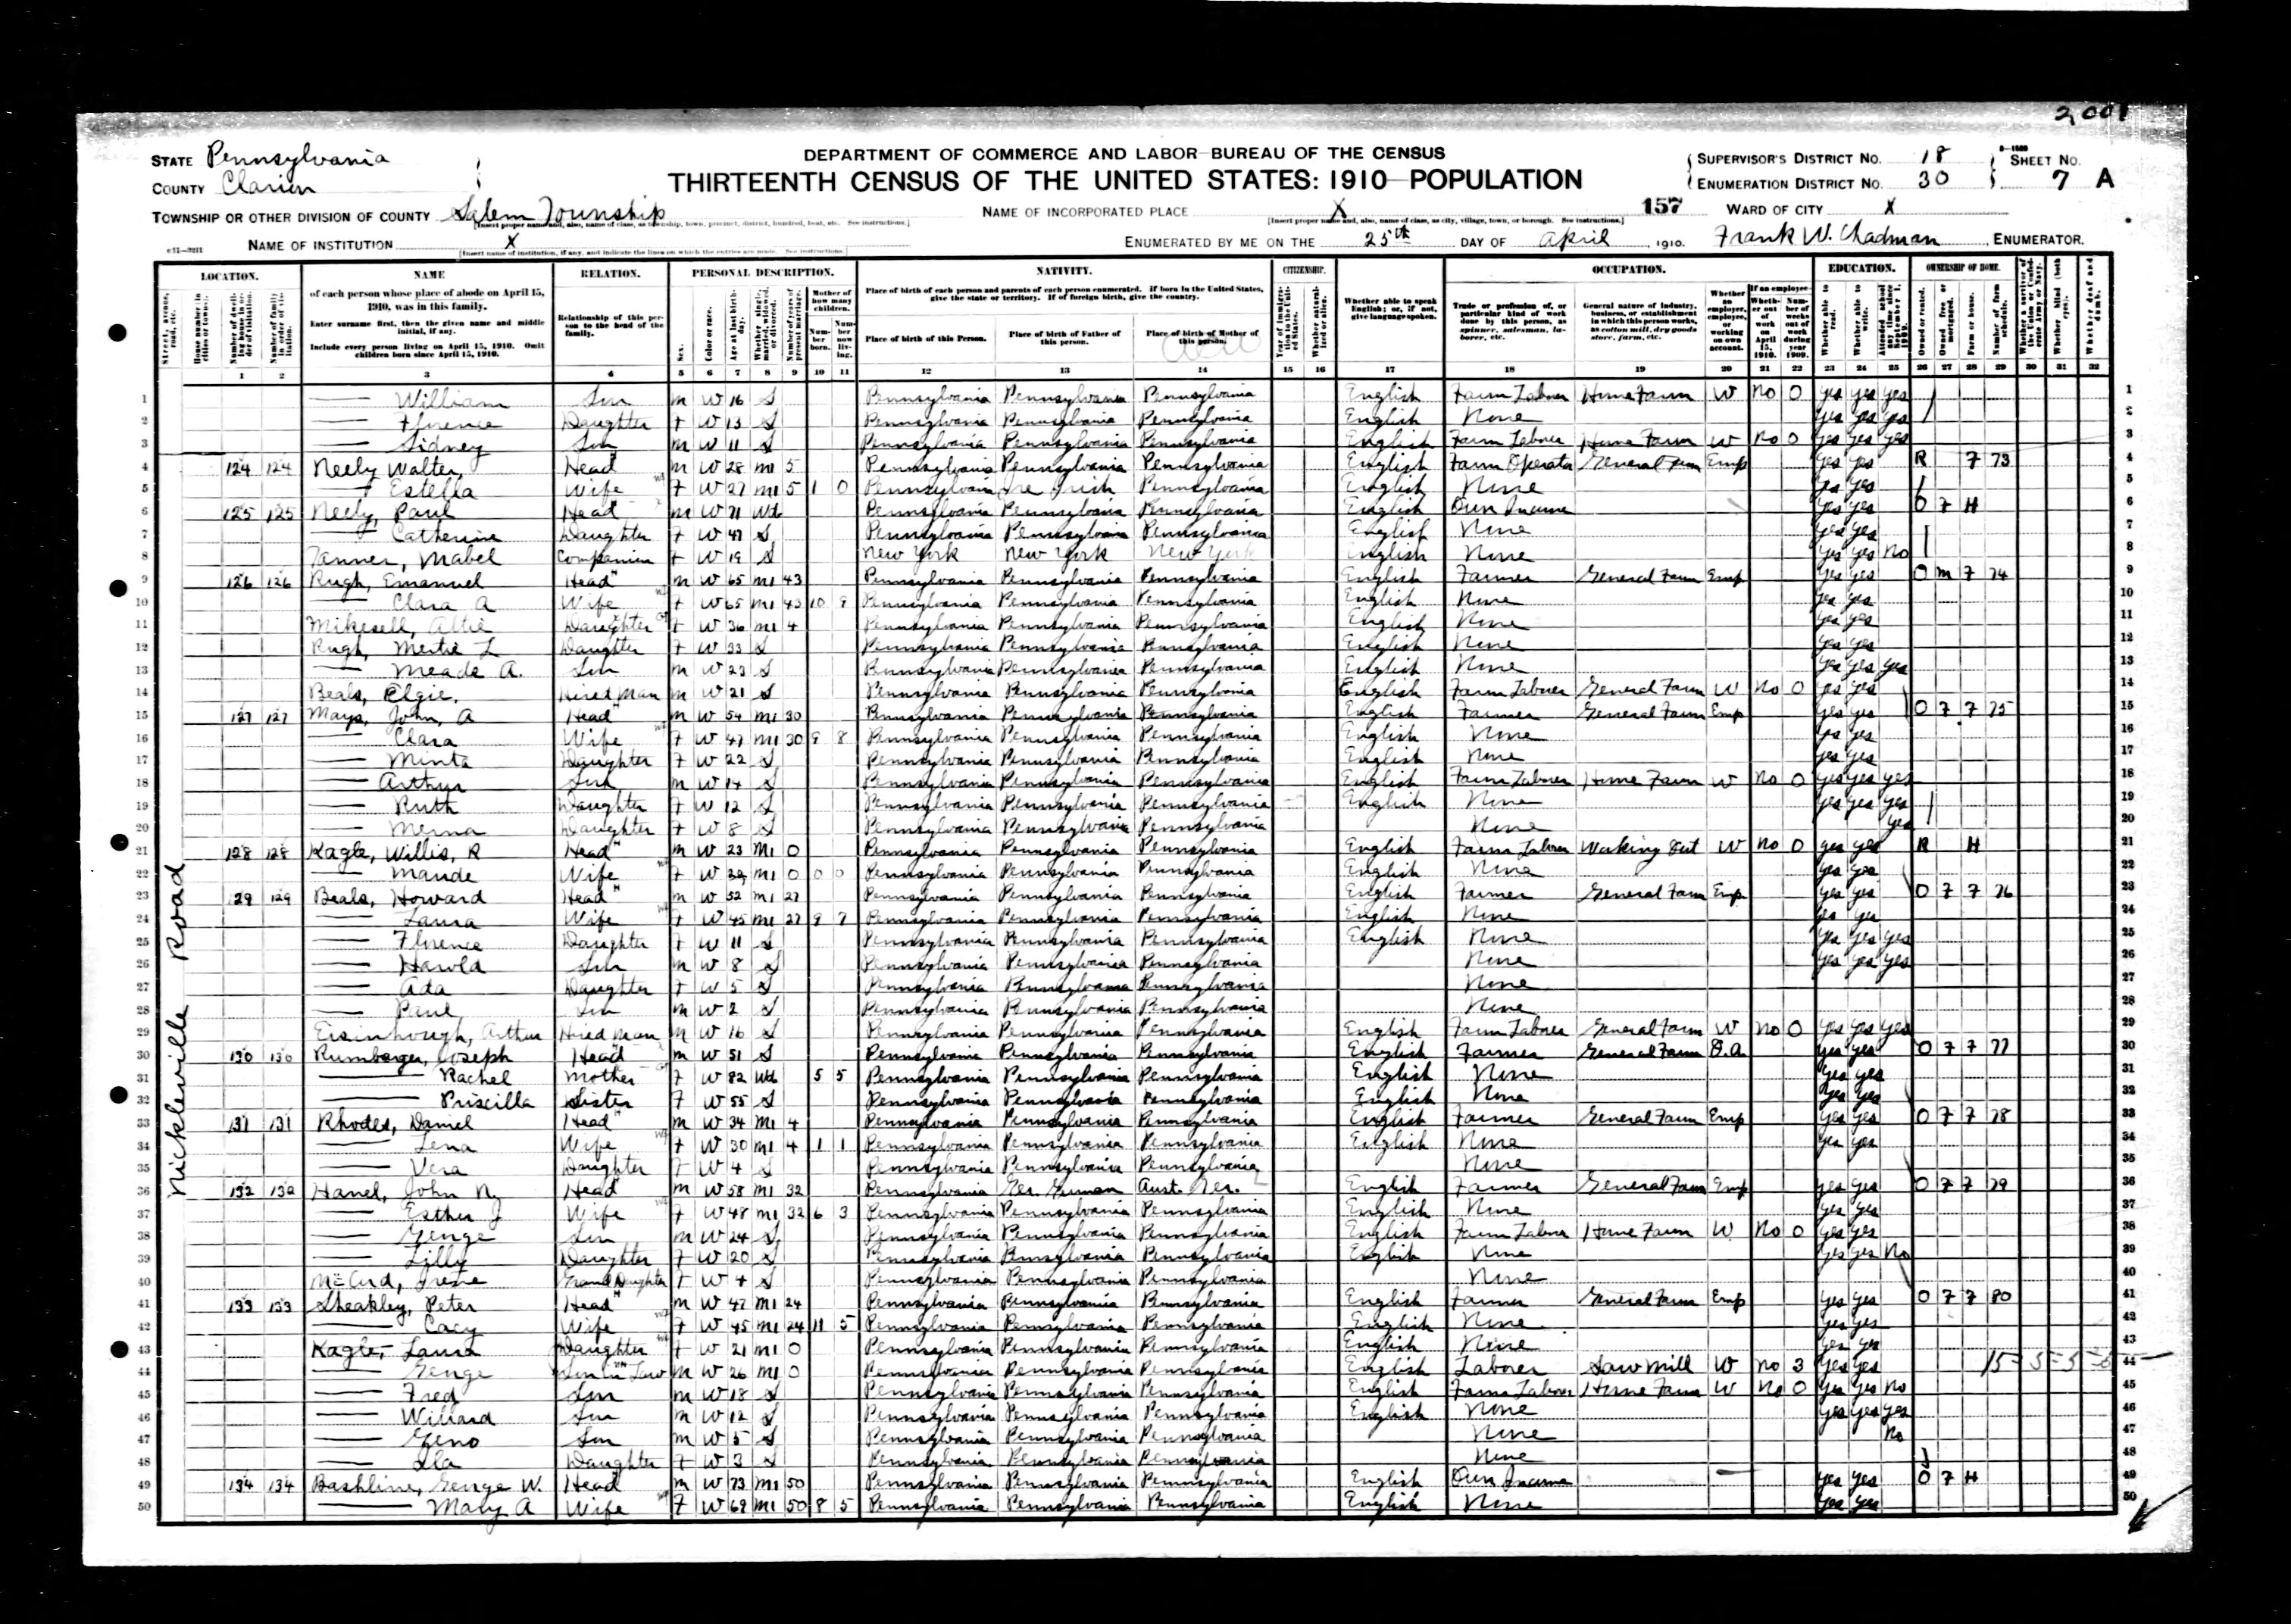 2,001
STATE Pennsylvania
COUNTY Clarion
DEPARTMENT OF COMMERCE AND LABOR—BUREAU OF THE CENSUS
THIRTEENTH CENSUS OF THE UNITED STATES: 1910—POPULATION
SUPERVISOR'S DISTRICT NO. 18
ENUMERATION DISTRICT NO. 30
SHEET NO. 7 A
TOWNSHIP OR OTHER DIVISION OF COUNTY Salem Township
NAME OF INCORPORATED PLACE X
157 WARD OF CITY X
NAME OF INSTITUTION X
ENUMERATED BY ME ON THE 25th DAY OF April, 1910. Frank W. Chadman, ENUMERATOR.
LOCATION. NAME RELATION. PERSONAL DESCRIPTION. NATIVITY. CITIZENSHIP. OCCUPATION. EDUCATION. OWNERSHIP OF HOME.
of each person whose place of abode on April 15, 1910, was in this family.
Enter surname first, then the given name and middle initial, if any.
Include every person living on April 15, 1910. Omit children born since April 15, 1910.
Relationship of this person to the head of the family.
Place of birth of each person and parents of each person enumerated. If born in the United States, give the state or territory. If of foreign birth, give the country.
Place of birth of this Person. Place of birth of Father of this person. Place of birth of Mother of this person.
Whether able to speak English; or, if not, give language spoken.
Trade or profession of, or particular kind of work done by this person, as spinner, salesman, laborer, etc.
General nature of industry, business, or establishment in which this person works, as cotton mill, dry goods store, farm, etc.
1 2 3 4 5 6 7 8 9 10 11 12 13 14 15 16 17 18 19 20 21 22 23 24 25 26 27 28 29 30 31 32
Nickleville Road
1 — William Son m W 16 S Pennsylvania Pennsylvania Pennsylvania English Farm Laborer Home Farm W No 0 yes yes yes
2 — Florence Daughter F W 13 S Pennsylvania Pennsylvania Pennsylvania English None yes yes yes
3 — Sidney Son m W 11 S Pennsylvania Pennsylvania Pennsylvania English Farm Laborer Home Farm W No 0 yes yes yes
4 124 124 Neely Walter Head m W 28 m1 5 Pennsylvania Pennsylvania Pennsylvania English Farm Operator General Farm Emp yes yes R F 73
5 — Estella Wife F W 27 m1 5 1 0 Pennsylvania Ire Irish Pennsylvania English None yes yes
6 125 125 Neely, Paul Head m W 71 Wd Pennsylvania Pennsylvania Pennsylvania English Own Income yes yes O F H
7 — Catherine Daughter F W 47 S Pennsylvania Pennsylvania Pennsylvania English None yes yes
8 Tanner, Mabel Companion F W 19 S New York New York New York English None yes yes No
9 126 126 Rugh, Emanuel Head m W 65 m1 43 Pennsylvania Pennsylvania Pennsylvania English Farmer General Farm Emp yes yes O m F 74
10 — Clara A Wife F W 65 m1 43 10 9 Pennsylvania Pennsylvania Pennsylvania English None yes yes
11 Mikesell, Altie Daughter F W 36 m1 4 Pennsylvania Pennsylvania Pennsylvania English None yes yes
12 Rugh, Mertie L Daughter F W 33 S Pennsylvania Pennsylvania Pennsylvania English None yes yes
13 — Meade A. Son m W 23 S Pennsylvania Pennsylvania Pennsylvania English None yes yes yes
14 Beals, Elgie, Hired Man m W 21 S Pennsylvania Pennsylvania Pennsylvania English Farm Laborer General Farm W No 0 yes yes
15 127 127 Mays, John, A Head m W 54 m1 30 Pennsylvania Pennsylvania Pennsylvania English Farmer General Farm Emp yes yes O F F 75
16 — Clara Wife F W 47 m1 30 9 8 Pennsylvania Pennsylvania Pennsylvania English None yes yes
17 — Minta Daughter F W 22 S Pennsylvania Pennsylvania Pennsylvania English None yes yes
18 — Arthur Son m W 14 S Pennsylvania Pennsylvania Pennsylvania English Farm Laborer Home Farm W No 0 yes yes yes
19 — Ruth Daughter F W 12 S Pennsylvania Pennsylvania Pennsylvania English None yes yes yes
20 — Merna Daughter F W 8 S Pennsylvania Pennsylvania Pennsylvania None yes
21 128 128 Kagle, Willis, R Head m W 23 m1 0 Pennsylvania Pennsylvania Pennsylvania English Farm Laborer Working Out W No 0 yes yes R H
22 — Maude Wife F W m1 0 0 0 Pennsylvania Pennsylvania Pennsylvania English None yes yes
23 129 129 Beals, Howard Head m W 52 m1 27 Pennsylvania Pennsylvania Pennsylvania English Farmer General Farm Emp yes yes O F F 76
24 — Laura Wife F W 45 m1 27 9 7 Pennsylvania Pennsylvania Pennsylvania English None yes yes
25 — Florence Daughter F W 11 S Pennsylvania Pennsylvania Pennsylvania English None yes yes yes
26 — Harold Son m W 8 S Pennsylvania Pennsylvania Pennsylvania None yes yes yes
27 — Ada Daughter F W 5 S Pennsylvania Pennsylvania Pennsylvania None
28 — Paul Son m W 2 S Pennsylvania Pennsylvania Pennsylvania None
29 Eisinhough, Arthur Hired man m W 16 S Pennsylvania Pennsylvania Pennsylvania English Farm Laborer General Farm W No 0 yes yes yes
30 130 130 Rumberger, Joseph Head m W 51 S Pennsylvania Pennsylvania Pennsylvania English Farmer General Farm O.A. yes yes O F F 77
31 — Rachel Mother F W 82 Wd 5 5 Pennsylvania Pennsylvania Pennsylvania English None yes yes
32 — Priscilla Sister F W 55 S Pennsylvania Pennsylvania Pennsylvania English None yes yes
33 131 131 Rhodes, Daniel Head m W 34 m1 4 Pennsylvania Pennsylvania Pennsylvania English Farmer General Farm Emp yes yes O F F 78
34 — Lena Wife F W 30 m1 4 1 1 Pennsylvania Pennsylvania Pennsylvania English None yes yes
35 — Vera Daughter F W 4 S Pennsylvania Pennsylvania Pennsylvania None
36 132 132 Hanel, John N. Head m W 58 m1 32 Pennsylvania Ger. German Aust. Ger. English Farmer General Farm Emp yes yes O F F 79
37 — Esther J Wife F W 48 m1 32 6 3 Pennsylvania Pennsylvania Pennsylvania English None yes yes
38 — George Son m W 24 S Pennsylvania Pennsylvania Pennsylvania English Farm Laborer Home Farm W No 0 yes yes
39 — Lilly Daughter F W 20 S Pennsylvania Pennsylvania Pennsylvania English None yes yes No
40 Irene Grand Daughter F W 4 S Pennsylvania Pennsylvania Pennsylvania None
41 133 133 Sheakley, Peter Head m W 47 m1 24 Pennsylvania Pennsylvania Pennsylvania English Farmer General Farm Emp yes yes O F F 80
42 — Cacy Wife F W 45 m1 24 11 5 Pennsylvania Pennsylvania Pennsylvania English None yes yes
43 Kagle, Laura Daughter F W 21 m1 0 Pennsylvania Pennsylvania Pennsylvania English None yes yes
44 — George Son in Law m W 26 m1 0 Pennsylvania Pennsylvania Pennsylvania English Laborer Saw Mill W No 3 yes yes
45 — Fred Son m W 18 S Pennsylvania Pennsylvania Pennsylvania English Farm Laborer Home Farm W No 0 yes yes No
46 — Willard Son m W 12 S Pennsylvania Pennsylvania Pennsylvania English None yes yes yes
47 — Geno Son m W 5 S Pennsylvania Pennsylvania Pennsylvania None No
48 — Ila Daughter F W 3 S Pennsylvania Pennsylvania Pennsylvania None
49 134 134 Bashline, George W. Head m W 73 m1 50 Pennsylvania Pennsylvania Pennsylvania English Own Income yes yes O F H
50 — Mary A Wife F W 69 m1 50 8 5 Pennsylvania Pennsylvania Pennsylvania English None yes yes